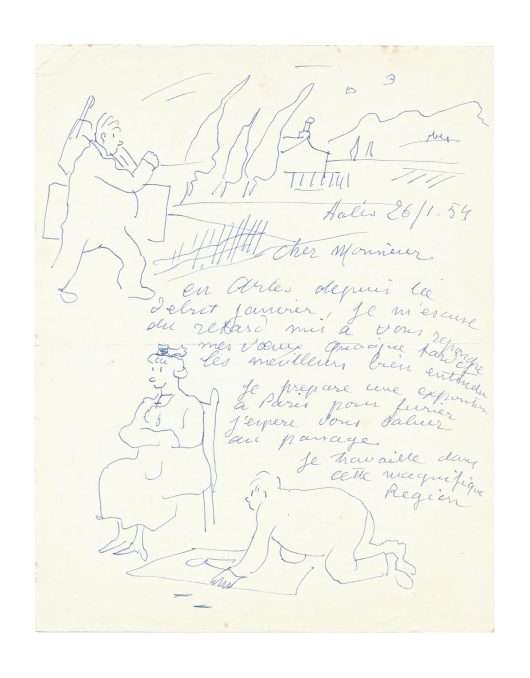 Arles 26/1. 54
Cher Monsieur
en Arles depuis le
debut janvier, Je m'excuse
du retard mis a vous
mes vœux quoique
les meilleurs bien entendu
Je prepare une exposition
a Paris pour fevrier
J'espere vous saluer
au passage
Je travaille dans
cette magnifique
Region